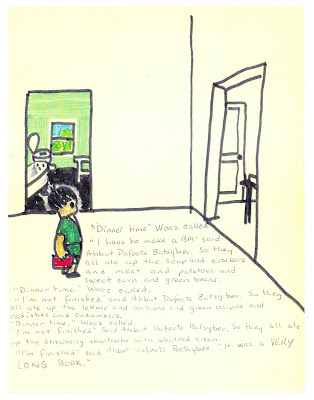 "Dinner time" Wooz called
"I have to make a BM" said
Ahbut Dafoots Botsybee. So they
all ate up the soup and crackers
and meat and potatoes and
sweet corn and green beans.
"Dinner time." Wooz called.
"I'm not finished" said Ahbut Dafoots Botsybee. So they
all ate up the lettuce and scallions and green onions and
radishes and cucumbers.
"Dinner time." Wooz called.
"I'm not finished" Said Ahbut Dafoots Botsybee. So they all ate
up the strawberry shortcake with whipped cream.
"I'm finished" said Ahbut Dafoots Botsybee. "It was a VERY
LONG BOOK."